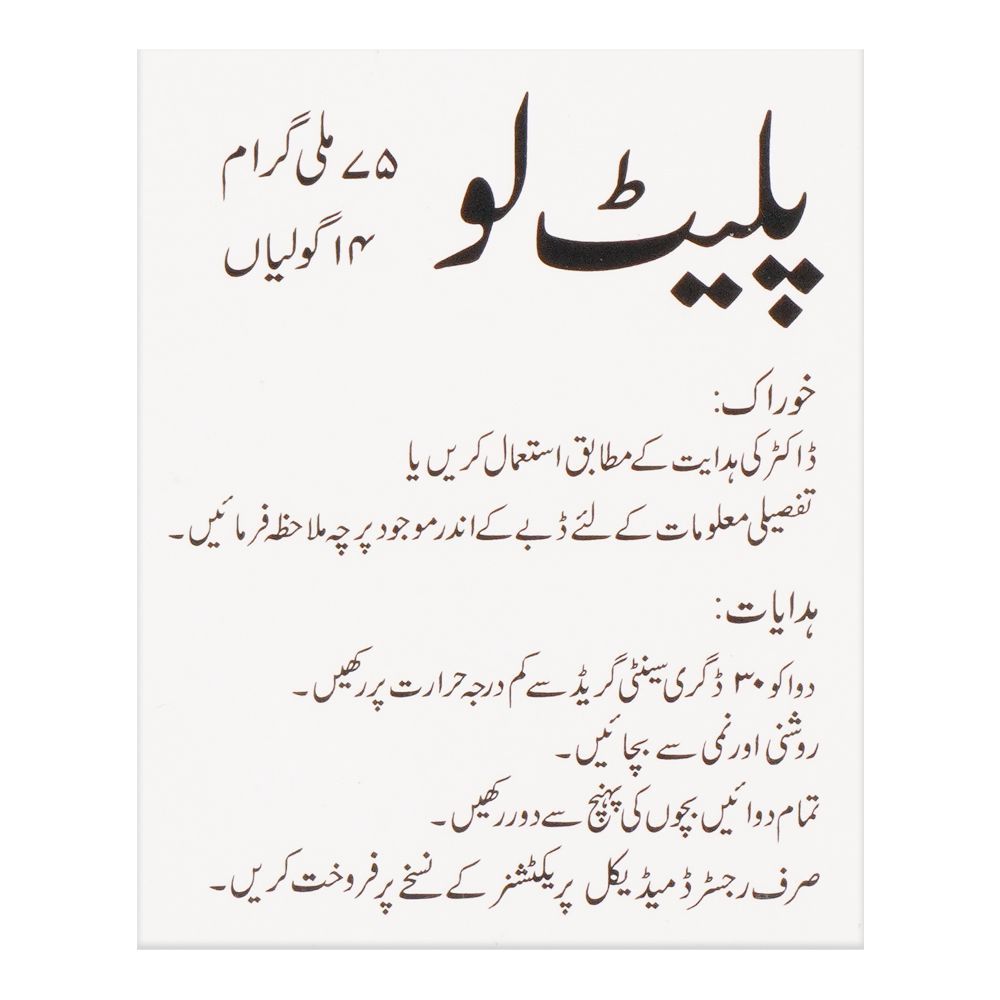 پلیٹ لو
۷۵ ملی گرام
۱۴ گولیاں
خوراک:
ڈاکٹر کی ہدایت کے مطابق استعمال کریں یا
تفصیلی معلومات کے لئے ڈبے کے اندر موجود پرچہ ملاحظہ فرمائیں۔
ہدایات:
دوا کو ۳۰ ڈگری سینٹی گریڈ سے کم درجہ حرارت پر رکھیں۔
روشنی اور نمی سے بچائیں۔
تمام دوائیں بچوں کی پہنچ سے دور رکھیں۔
صرف رجسٹرڈ میڈیکل پریکٹشنر کے نسخے پر فروخت کریں۔